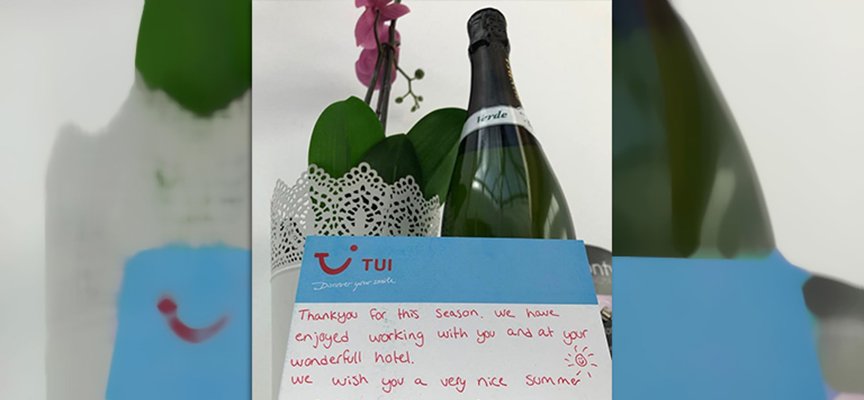 Verde
TUI
Discover your smile
Thankyou for this season. we have
enjoyed working with you and at your
wonderfull hotel.
we wish you a very nice summer